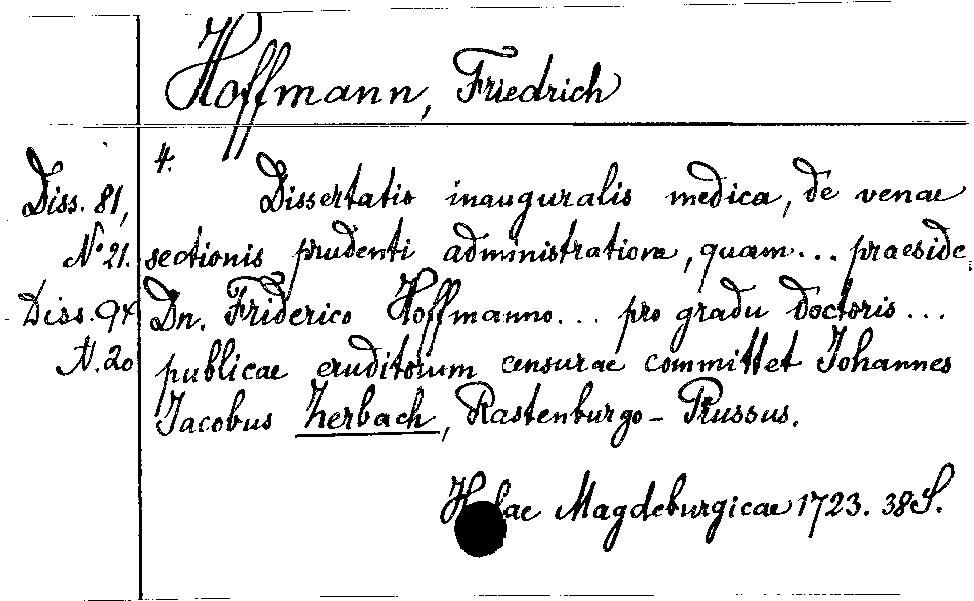 Hoffmann, Friedrich
4.
Diss. 81, Dissertatio inauguralis medica, de venae
No 21. sectionis prudenti administratione, quam... praeside
Diss. 94 Dn. Friderico Hoffmanno... pro gradu doctoris...
N. 20 publicae eruditorum censurae committet Johannes
Jacobus Zerbach, Rastenburgo-Prussus.
Magdeburgicae 1723. 38 S.